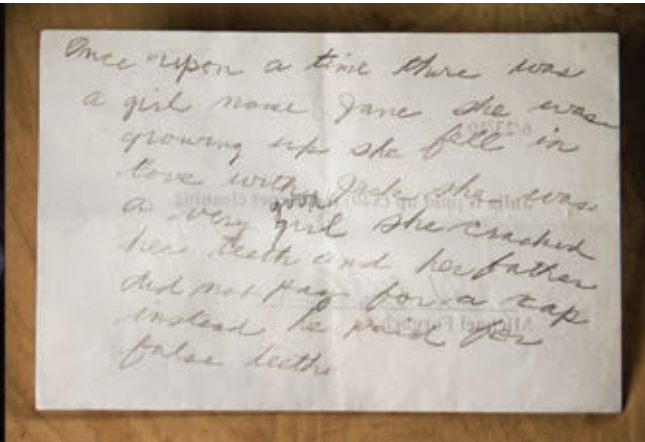 Once upon a time there was
a girl name Jane she was
growing up she fell in
love with Jack she was
a very good girl she cracked
her teeth and her father
did not pay for a cap
instead he paid for
false teeth